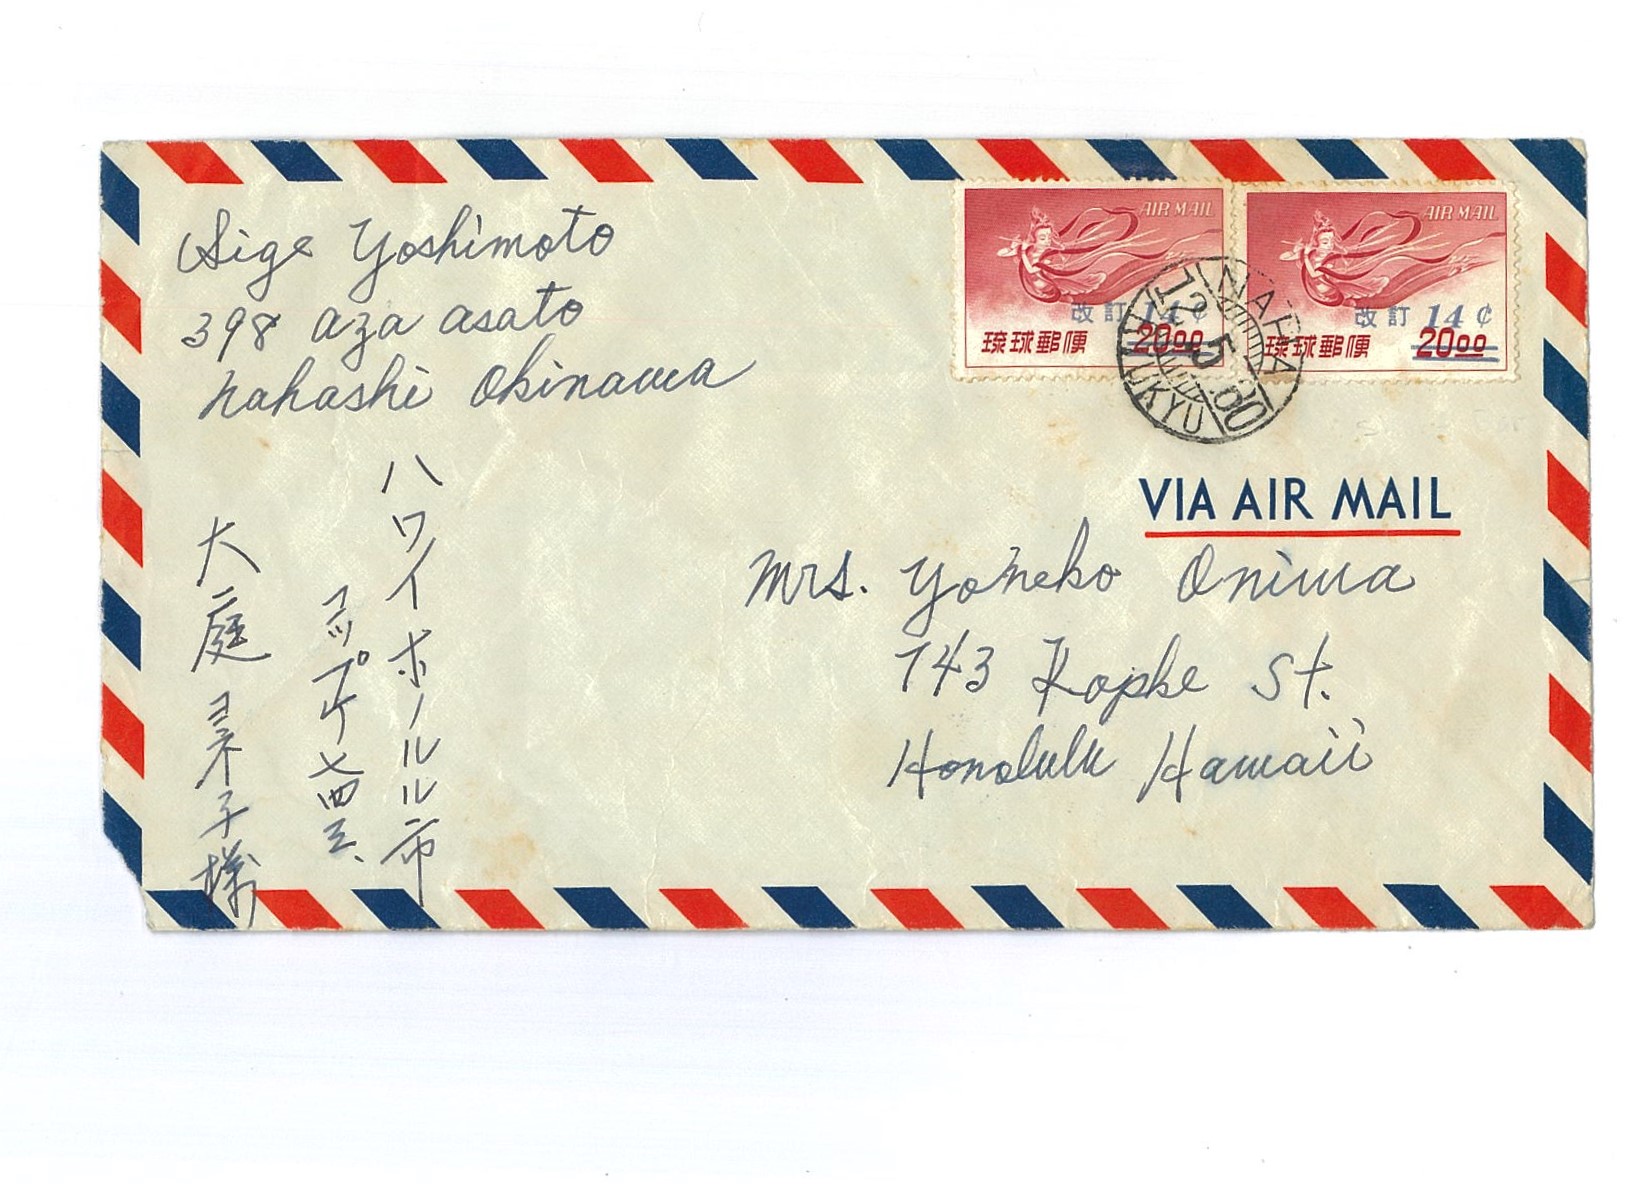 Sige Yoshimoto
398 aza asato
nahashi Okinawa
AIR MAIL
改訂 14¢
琉球郵便 2000
AIR MAIL
改訂 14¢
琉球郵便 2000
NAHA
RYUKYU
VIA AIR MAIL
Mrs. Yoneko Oniwa
743 Kopke St.
Honolulu Hawaii
ハワイホノルル市
コップケ七四三、
大庭ヨネ子様